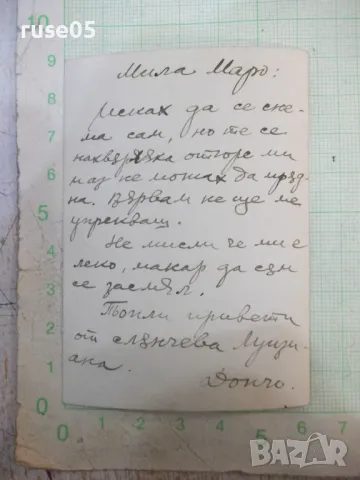 ruse05
Мила Маро:
Исках да се сне-
ма сам, но те се
нахвърляха отгоре ми
и аз не можах да
на. Вярвам не ще ме
упрекваш.
Не мисли че ми е
леко, макар да съм
се засмял.
Топли привети
от слънчева Луизи-
ана.
Дончо.
10
9
8
7
6
5
4
3
2
1
0
0 1 2 3 4 5 6 7
BAZAR
bg